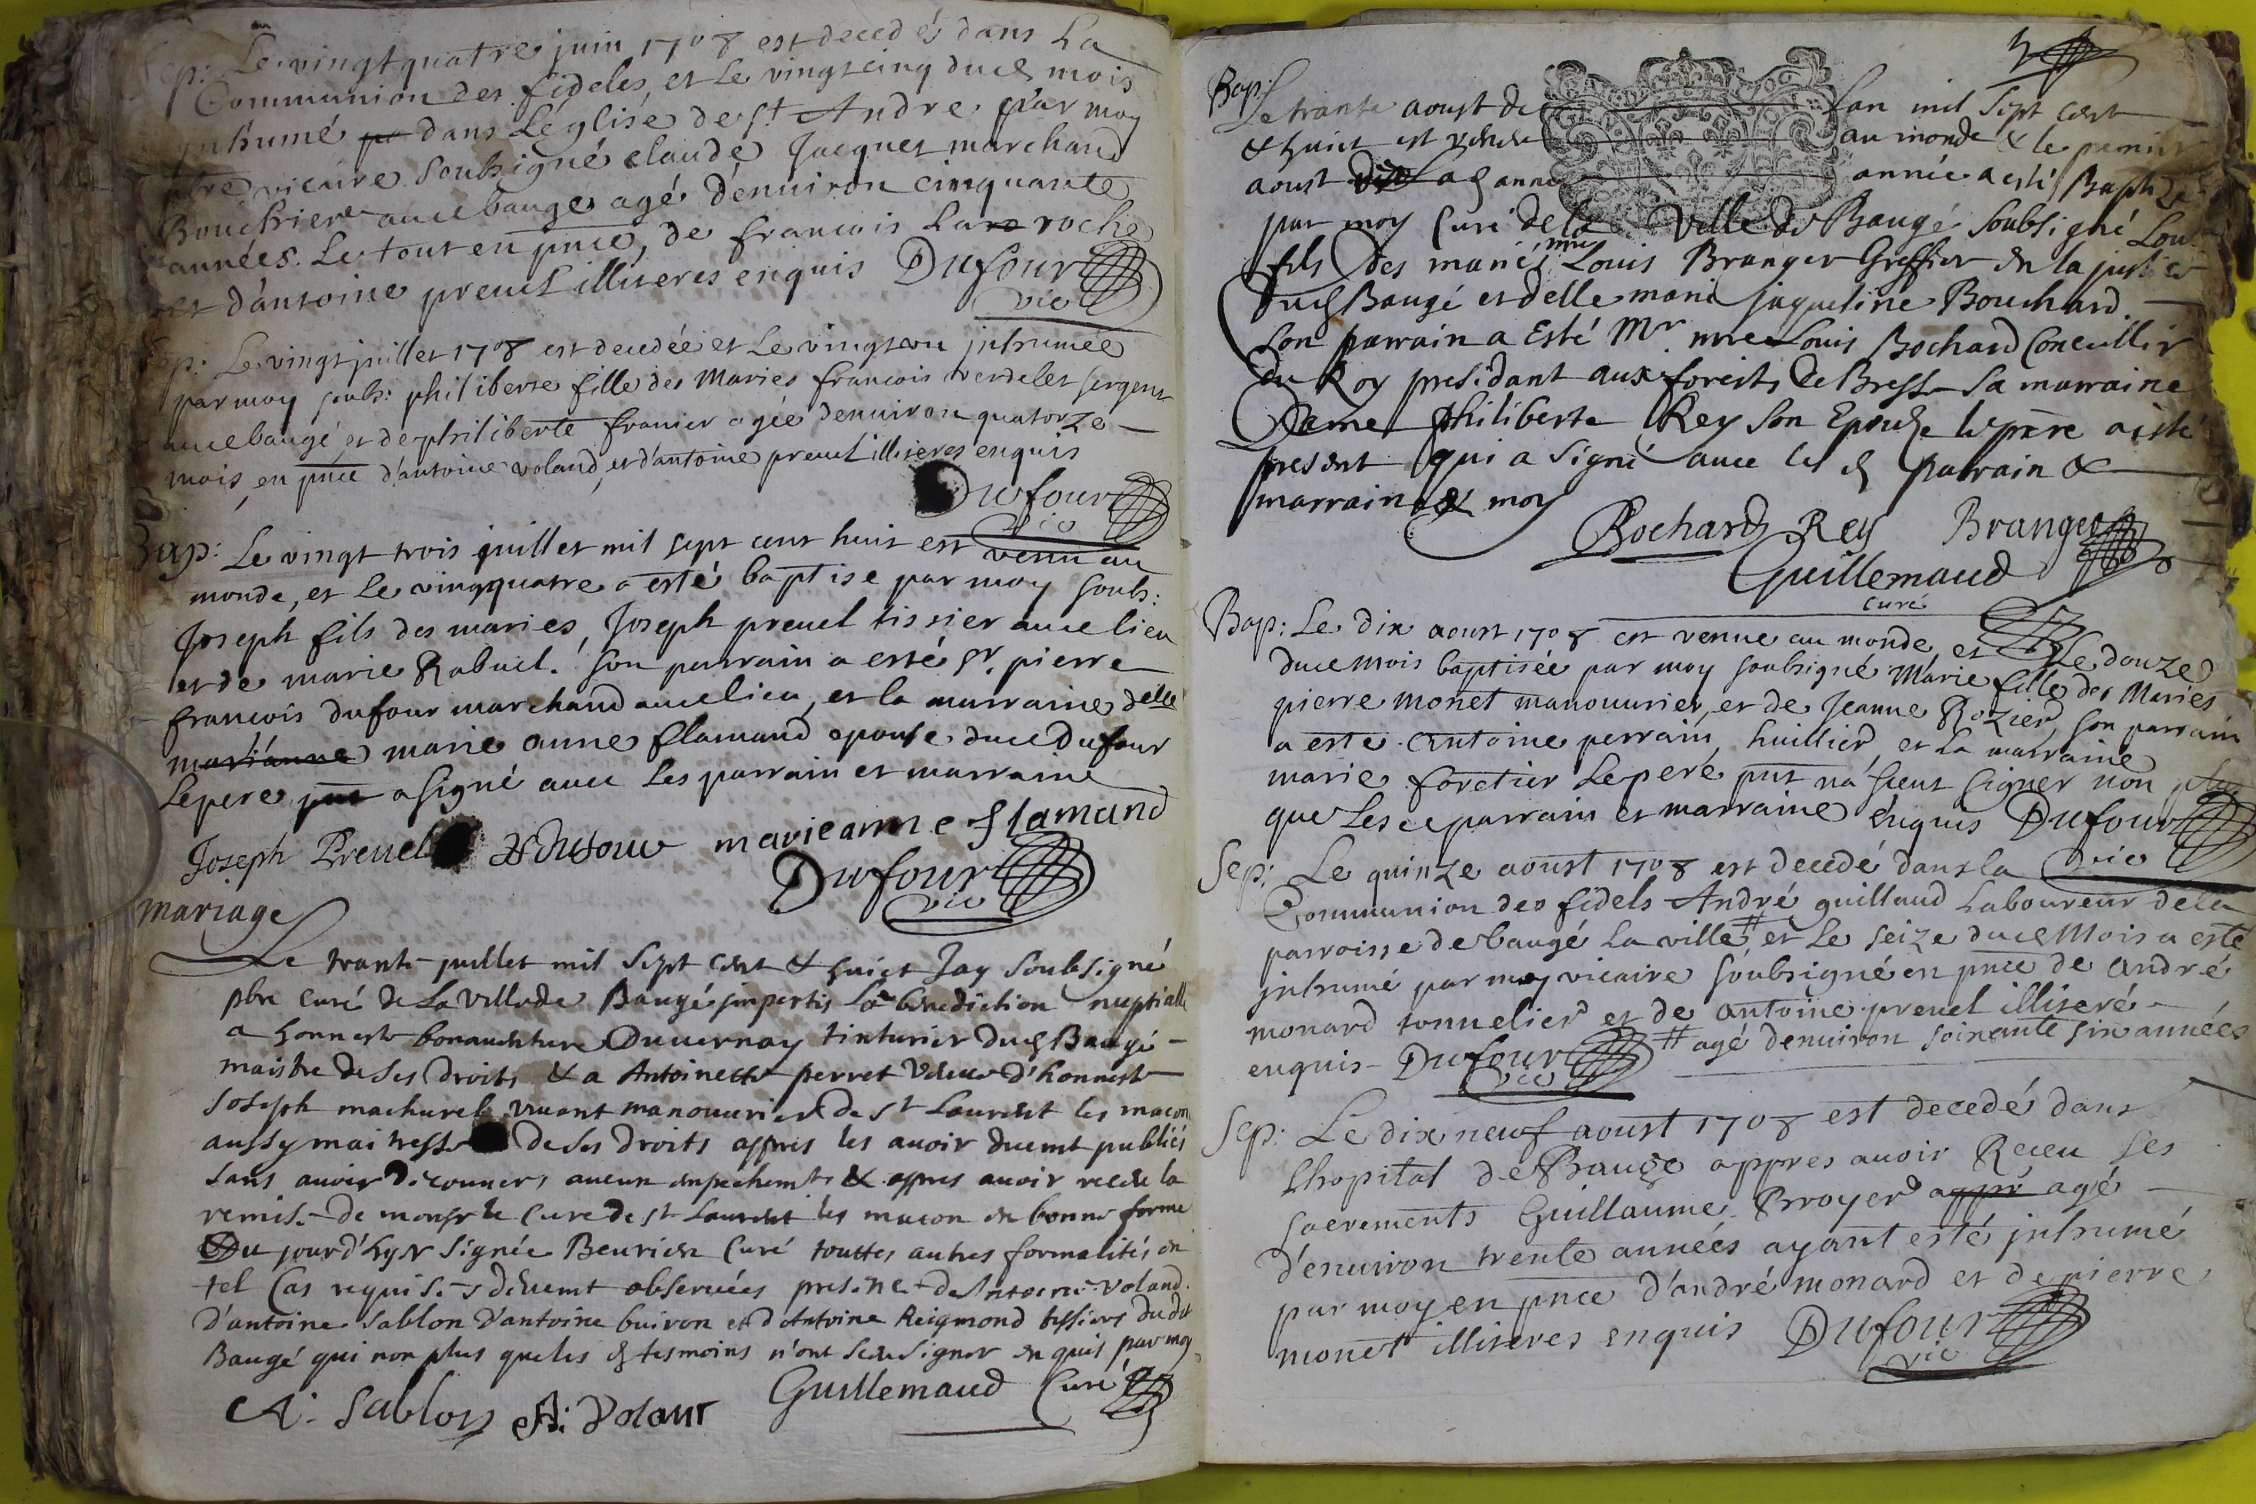 Sep: Le vingt quatre juin 1708 est decedés dans La
Communion des fideles, et Le vingt cinq dud mois
inhumé dans L'églisé de St Andre par moy
pbre vicaire soubsigné claude Jacquet marchand
Boucher aud baugé agé d'enuiron cinquante
années. Le tout en pnce, de francois La roche
et d'antoine preuel illiteres enquis Dufour
vic
Sep: Le vingt juillet 1708 est decedée et Le vingt un inhumée
par moy soubs: philiberte fille des Maries francois verdelet sergent
aud baugé, et de philiberte franier agée denuiron quatorze
mois, en pnce d'antoine voland, et d'antoine preuel illiteres enquis
Dufour
vic
Bap: Le vingt trois juillet mil sept cent huit est venu au
monde, et Le vingquatre a esté baptise par moy soubs:
Joseph fils des maries, Joseph preuel tissier aud lieu
et de marie Rabuel. son parrain a esté sr. pierre
francois dufour marchand aud lieu, et la marraine delle
marianne marie anne flamand epouse dud Dufour
Le pere a signé auec Les parrain et marraine
Joseph Preuel Dufour marieanne flamand
Dufour
vic
mariage
Le trante juillet mil sept cent & huict Jay soubsigné
pbre curé de La ville de Baugé impertis La benediction nuptialle
a honneste bonauenture Duuernay tinturier dud Baugé
maistre de ses droits & a Antoinette perret veuue d'honneste
Joseph machurel viuant manouurier de st Laurent les macon
aussy maitresse de ses droits appres les auoir duemt publiés
sans auoir decouuert aucun enpechemt & appres auoir receu la
remise de monsr le curé de st Laurent les macon en bonne forme
Du jourd'hyer signée Beurier curé touttes autres formalités en
tel cas requises deuemt obseruées presence de Antoine voland.
D'antoine Sablon d'antoine buiron et d'Antoine Reigmond tissiers dudit
Baugé qui non plus que les d tesmoins n'ont sceu signer enquis par moy
Guillemaud Curé
A. Sablon A: Volant
Bap:
Le trante aoust de Lan mil sept cent
& huict est venu au monde & le premier
aoust année a esté Baptizé
par moy Curé de la ville de Baugé soubsigné Louis
fils des mariés mre Louis Branger Greffier en la justice
dud Baugé et delle marie jaqueline Bouchard.
Son parrain a Esté Mr. mre Louis Bochard Conceullier
du Roy presidant aux forests de Bresse sa marraine
Dame philiberte Rey son Epouse le pere a esté
present qui a signé auec les d parrain &
marraine & moy
Bochard Rey Branger
Guillemaud
curé
Bap: Le dix aoust 1708 est venue au monde, et Le douze
dud mois baptisée par moy soubsigné Marie fille des Maries
pierre monet manouurier, et de Jeanne Rozier, son parrain
a esté Antoine perrain, huillier et La marraine
marie foretier Le pere pnt na sceut signer non plus
que Les parrain et marraine enquis Dufour
vic
Sep: Le quinze aoust 1708 est decedé dans la
Communion des fidels André guillaud Laboureur de la
parroisse de baugé La ville # et Le seize dud Mois a esté
inhumé par moy vicaire soubsigné en pnce de André
monard tonnelier et de antoine preuel illiteré
enquis Dufour # agé denuiron soixante six années
vic
Sep: Le dix neuf aoust 1708 est decedé dans
Lhopital de Baugé appres auoir Receu ses
sacrements Guillaume Broyer appr agé
d'enuiron trente années ayant esté inhumé
par moy en pnce d'andré monard et de pierre
monet illiteres enquis Dufour
vic